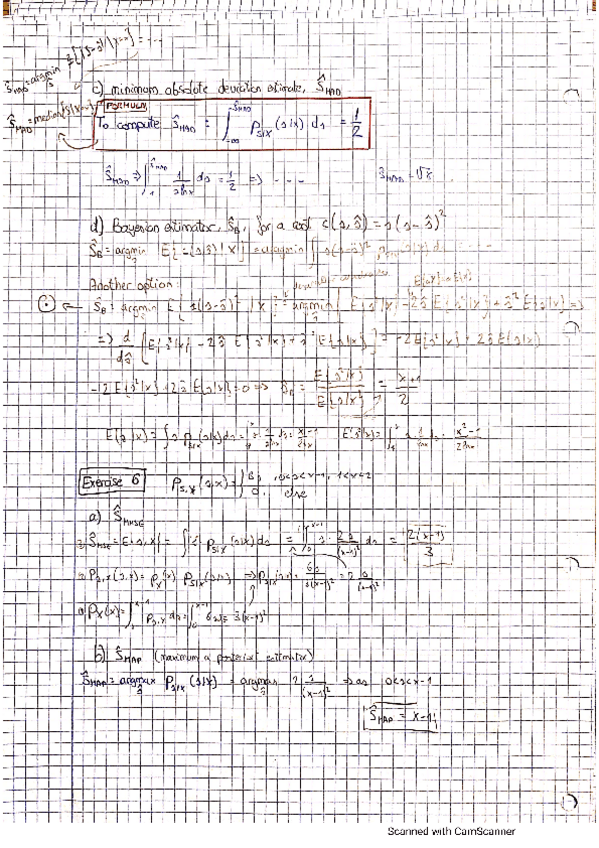 ŝ_MAD = argmin_ŝ E{|s-ŝ| |X=x} = ...
c) minimum absolute deviation estimate, ŝ_MAD
ŝ_MAD = median{s|X=x}
FORMULA
To compute ŝ_MAD : ∫_{-∞}^{ŝ_MAD} P_{S|X}(s|x) ds = 1/2
ŝ_MAD => ∫_1^{ŝ_MAD} 1/(s ln x) ds = 1/2 => ... ŝ_MAD = √x
d) Bayesian estimator, ŝ_B, for a cost c(s,ŝ) = s(s-ŝ)²
ŝ_B = argmin_ŝ E{c(s,ŝ)|X} = argmin_ŝ ∫ s(s-ŝ)²
Another option:
ŝ_B = argmin_ŝ E{s(s-ŝ)²|X} = argmin_ŝ { E{s³|x} - 2ŝ E{s²|x} + ŝ² E{s|x} } =>
=> d/dŝ [E{s³|x} - 2ŝ E{s²|x} + ŝ² E{s|x}] = -2E{s²|x} + 2ŝ E{s|x}
-2E{s²|x} + 2ŝ E{s|x} = 0 => ŝ_B = E{s²|x}/E{s|x} = (x+1)/2
E{s|x} = ∫ s P_{S|X}(s|x) ds = ∫_1^x s 1/(s ln x) ds = (x-1)/ln x E{s²|x} = ∫_1^x s 1/ln x ds = (x²-1)/(2 ln x)
Exercise 6 P_{S,X}(s,x) = { 6s, 0<s<x-1, 1<x<2
0, else
a) ŝ_MMSE
3) ŝ_MSE = E{s|x} = ∫ s P_{S|X}(s|x) ds = ∫_0^{x-1} s · 2s/(x-1)² ds = 2(x-1)/3
2) P_{S,X}(s,x) = P_X(x) P_{S|X}(s|x) => P_{S|X}(s|x) = 6s/(3(x-1)²) = 2s/(x-1)²
1) P_X(x) = ∫_0^{x-1} P_{S,X} ds = ∫_0^{x-1} 6s ds = 3(x-1)²
b) ŝ_MAP (maximum a posteriori estimator)
ŝ_MAP = argmax_ŝ P_{S|X}(s|x) = argmax_ŝ 2s/(x-1)² => as 0<s<x-1
ŝ_MAP = x-1
Scanned with CamScanner